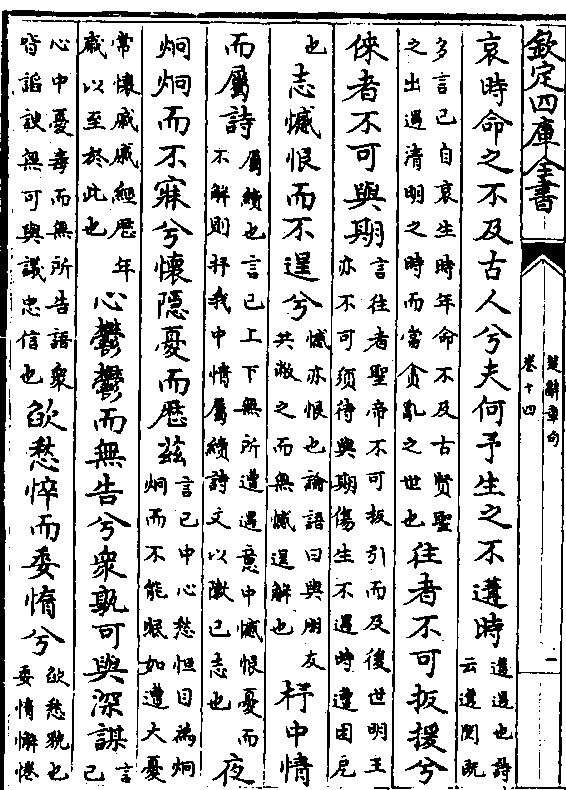 欽定四庫全書
楚辭章句
卷十四
一
哀時命之不及古人兮夫何予生之不遘時
遘遇也詩
云遘閔既
多言己自哀生時年命不及古賢聖
之出遇清明之時而當貪亂之世也
往者不可扳援兮
俫者不可與期
言往者聖帝不可扳引而及後世明王
亦不可須待與期傷生不遇時遭困戹
也
志憾恨而不逞兮
憾亦恨也論語曰與朋友
共敝之而無憾逞解也
杼中情
而屬詩
屬續也言己上下無所遭遇意中憾恨憂而
不解則抒我中情屬續詩文以陳己志也
夜
炯炯而不寐兮懷隱憂而歷茲
言己中心愁怛目為炯
炯而不能眠如遭大憂
常懷戚戚經歷年
歲以至於此也
心鬱鬱而無告兮衆孰可與深謀
言
己
心中憂毒而無所告語衆
皆諂諛無可與議忠信也
欿愁悴而委惰兮
欿愁貌也
委惰懈倦